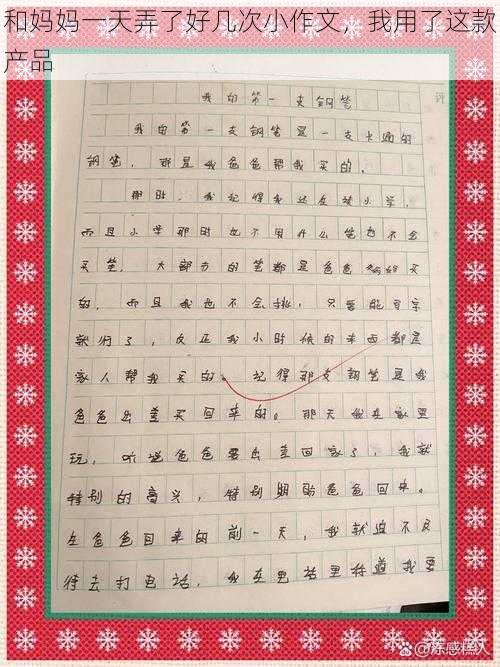 和妈妈一天弄了好几次小作文，我用了这款
产品
评
我的第一支钢笔
我的第一支钢笔是一支卡通的
钢笔，那是我爸爸帮我买的。
那时，我记得我还在读小学，
而且小学那时也不用什么笔也不会
买笔，大部分的笔都是爸爸妈妈买
的，而且我也不会挑，只要能写字
就行了，反正我小时候的东西都是
家人帮我买的。记得那支钢笔是我
爸爸出差买回来的。那天我在家里
玩，听说爸爸要出差回家了，我就
特别的高兴，特别期盼爸爸回来。
在爸爸回来的前一天，我就迫不及
待去打电话，我在电话里知道我要